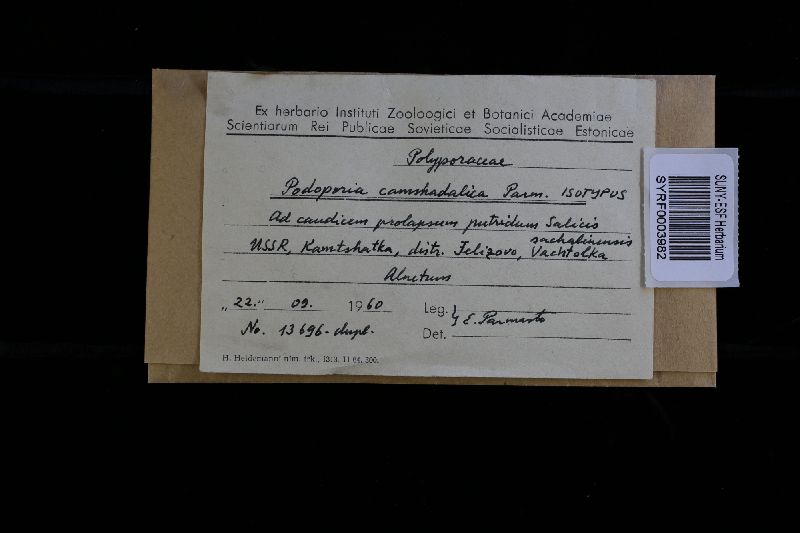 Ex herbario Instituti Zooloogici et Botanici Academiae
Scientiarum Rei Publicae Sovieticae Socialisticae Estonicae
Polyporaceae
Podoporia camshadalica Parm. ISOTYPUS
Ad caudicem prolapsum putridum Salicis
sachalinensis
USSR, Kamtshatka, distr. Jelizovo, Vachtolka
Alnetum
"22." 09. 1960
Leg. } E. Parmasto
No. 13696-dupl.
Det.
H. Heidemanni nim. trk., 1313. 11 64. 300.
SUNY-ESF Herbarium
SYRF0003982